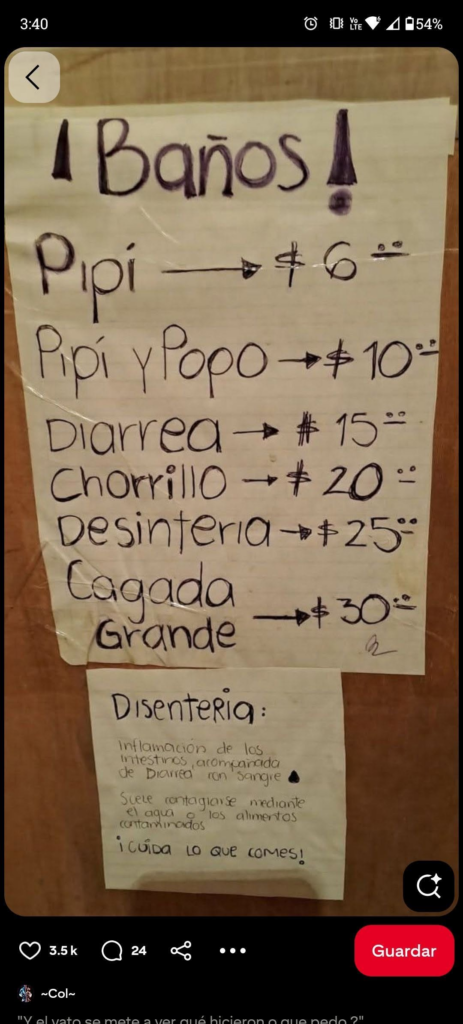 3:40
Vo LTE 54%
¡Baños!
Pipí → $6
Pipí y Popo → $10
Diarrea → $15
Chorrillo → $20
Desinteria → $25
Cagada
Grande → $30
Disenteria:
Inflamación de los
Intestinos, acompañada
de Diarrea con Sangre
Suele contagiarse mediante
el agua o los alimentos
contaminados
¡CUIDA LO QUE COMES!
3.5 k
24
Guardar
~Col~
"Y el vato se mete a ver qué hicieron o que pedo ?"